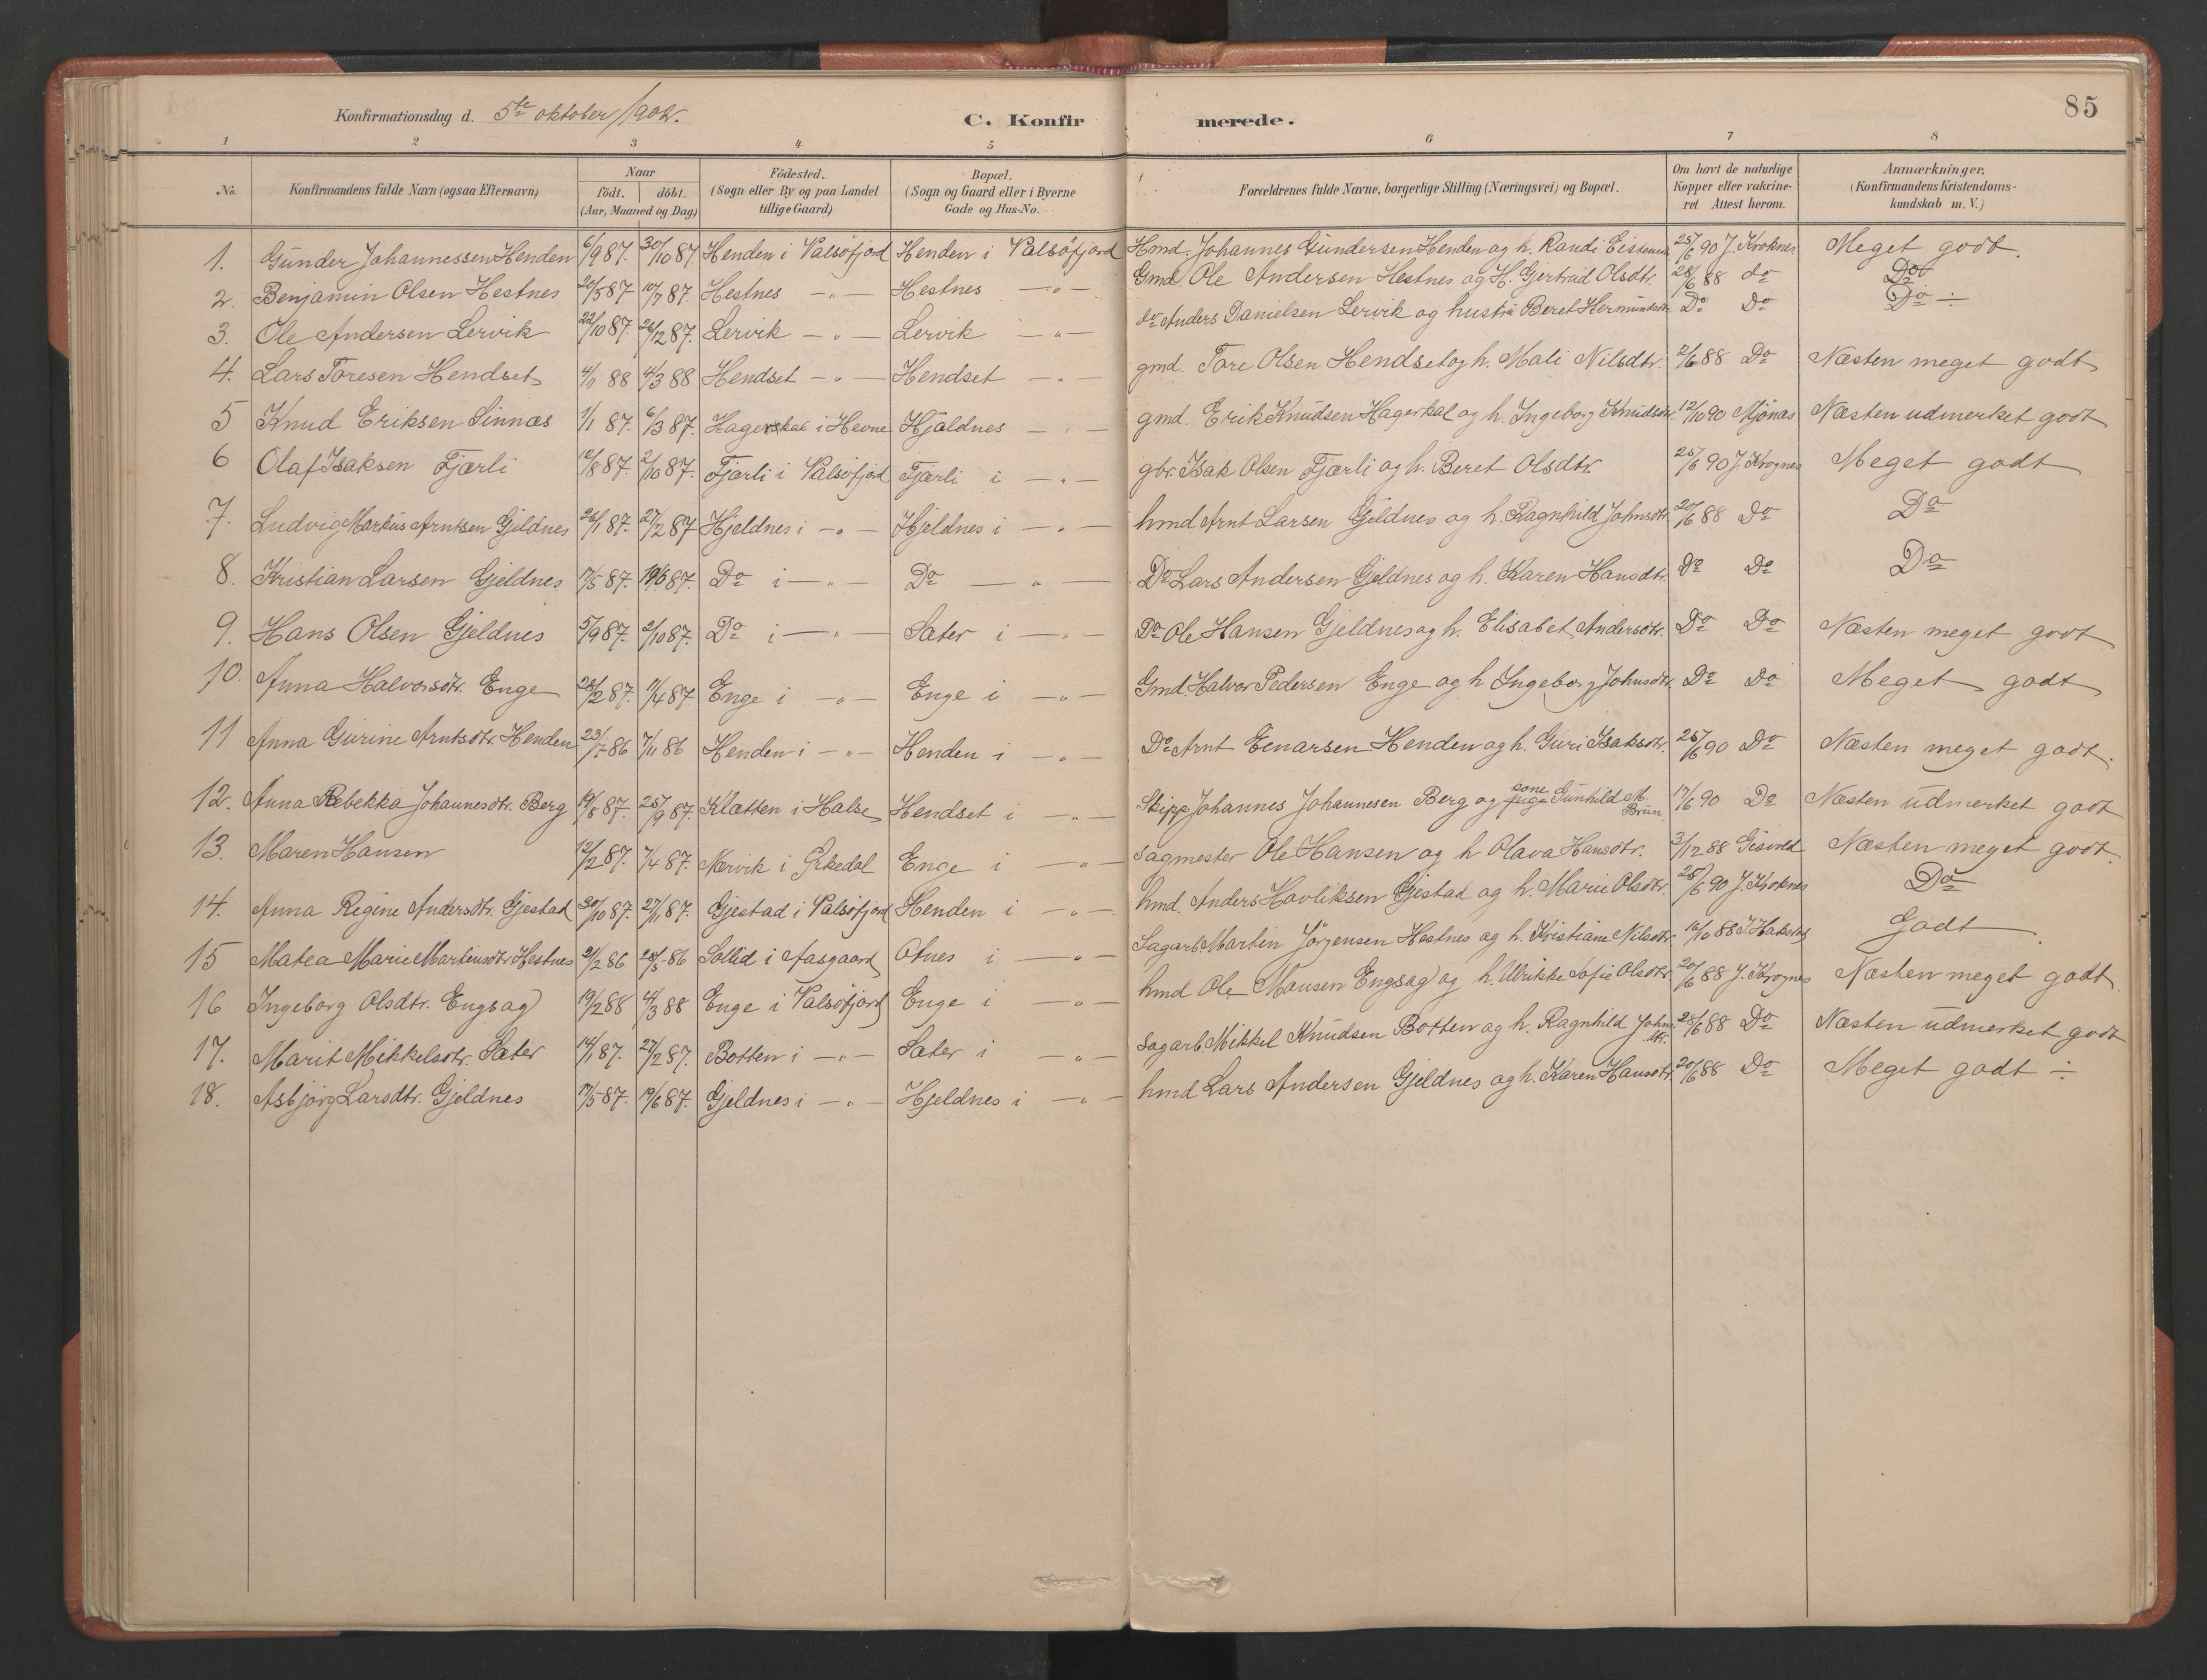 85
Konfirmationsdag d. 5te oktober 1902.
C. Konfirmerede.
1 2 3 4 5 6 7 8
No. Konfirmandens fulde Navn (ogsaa Efternavn) Naar födt. döbt. (Aar, Maaned og Dag) Födested. (Sogn eller By og paa Landet tillige Gaard) Bopæl. (Sogn og Gaard eller i Byerne Gade og Hus-No. Forældrenes fulde Navne, borgerlige Stilling (Næringsvei) og Bopæl. Om havt de naturlige Kopper eller vakcineret Attest herom. Anmærkninger, (Konfirmandens Kristendomskundskab m. V.)
1. Gunder Johannessen Henden 6/9 87. 30/10 87. Henden i Valsöfjord Henden i Valsöfjord Hmd. Johannes Gundersen Henden og h. Randi 25/6 90 J. Kroknes Meget godt.
2. Benjamin Olsen Hestnes 20/5 87 10/7 87. Hestnes — " — Hestnes — " — Gmd. Ole Andersen Hestnes og H. Gjertrud Olsdtr. 28/6 88 do Do
3. Ole Andersen Lervik 22/10 87. 26/12 87. Lervik — " — Lervik — " — do Anders Danielsen Lervik og hustru Beret Hermundsdtr. Do Do Do ÷
4. Lars Toresen Hendset 4/1 88 4/3 88 Hendset — " — Hendset — " — gmd. Tore Olsen Hendset og h. Mali Nilsdtr. 2/6 88 Do Næsten meget godt
5 Knud Eriksen Linnæs 1/1 87. 6/3 87. Hagerskal i Hevne Hjäldnes — " — gmd. Erik Knudsen Hagerkal og h. Ingeborg Knudsdtr. 12/10 90 Mjönas Næsten udmerket godt
6 Olaf Isaksen Fjærli 12/8 87. 2/10 87. Fjærli i Valsöfjord Fjærli i — " — gbr. Isak Olsen Fjærli og h. Beret Olsdtr. 25/6 90 J. Krognes Meget godt
7. Ludvig Markus Arntsen Gjeldnes 26/1 87. 27/2 87 Hjeldnes i — " — Hjeldnes i — " — hmd. Arnt Larsen Gjeldnes og h. Ragnhild Johnsdtr. 20/6 88 Do Do
8. Kristian Larsen Gjeldnes 17/5 87. 19/6 87. Do i — " — Do — " — Do Lars Andersen Gjeldnes og h. Karen Hansdtr. Do Do Do
9. Hans Olsen Gjeldnes 5/9 87. 2/10 87. Do i — " — Sæter i — " — Do Ole Hansen Gjeldnes og h. Elisabet Andersdtr. Do Do Næsten meget godt
10. Anna Halvorsdtr. Enge 28/2 87. 11/4 87 Enge i — " — Enge i — " — Gmd. Halvor Pedersen Enge og h Ingeborg Johnsdtr. Do Do Meget godt
11 Anna Gurine Arntsdtr. Henden 23/7 86 7/11 86 Henden i — " — Henden i — " — Do Arnt Eenarsen Henden og h. Guri Isaksdtr. 25/6 90 Do Næsten meget godt.
12. Anna Rebekka Johannesdtr. Berg 19/8 87. 25/9 87. Klætten i Halse Hendset i — " — Skipp Johannes Johannesen Berg og kone Gunhild M. Brun 17/6 90 Do Næsten udmerket godt
13. Maren Hansen 12/2 87. 7/4 87. Nærvik i Örkedal Enge i — " — Sagmester Ole Hansen og h Olava Hansdtr. 3/12 88 Gisvold Næsten meget godt.
14. Anna Regine Andersdtr. Gjestad 30/10 87. 27/11 87. Gjestad i Valsöfjord Henden i — " — hmd. Anders Havliksen Gjestad og h. Marie Olsdtr. 25/6 90 J. Kroknes Do
15 Matea Marie Martinsdtr Hestnes 21/2 86 28/5 86 Sollid i Aasgaard Otnes i — " — Sagarb. Martin Jörgensen Hestnes og h. Kristiane Nilsdtr. 16/10 88 Godt
16 Ingeborg Olsdtr. Engsag 19/2 88 4/3 88 Enge i Valsöfjord Enge i — " — hmd Ole Hansen Engsag og h. Ulrikke Sofie Olsdtr. 20/6 88 J. Krognes Næsten meget godt
17. Marit Mikkelsdtr. Sæter 14/1 87. 27/2 87. Botten i — " — Sæter i — " — Sagarb. Mikkel Knudsen Botten og h. Ragnhild Johnsdtr. 28/6 88 Do Næsten udmerket godt
18. Asbjörg Larsdtr. Gjeldnes 17/5 87. 19/6 87. Gjeldnes i — " — Hjeldnes i — " — hmd Lars Andersen Gjeldnes og h. Karen Hansdtr. 20/6 88 Do Meget godt ÷